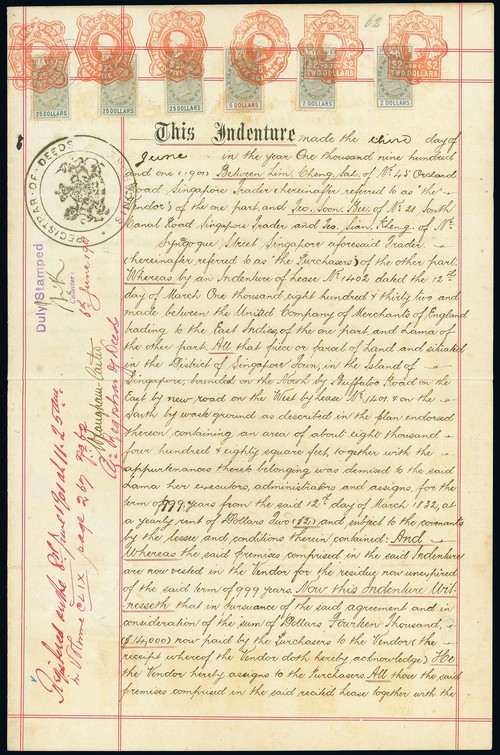 62
SINGAPORE
SINGAPORE
SINGAPORE
SINGAPORE
SINGAPORE
SINGAPORE
$2 $2
TWO DOLLARS
$2 $2
TWO DOLLARS
25 DOLLARS
25 DOLLARS
25 DOLLARS
5 DOLLARS
2 DOLLARS
2 DOLLARS
This Indenture made the third day of
June in the year One thousand nine hundred
and one (1901) Between Lim Cheng Sat of No. 45 Orchard
Road Singapore Trader (hereinafter referred to as "the
Vendor") of the one part, and Teo Soon Bee of No. 21 South
Canal Road Singapore Trader and Teo Sian Keng of No.
Synagogue Street Singapore aforesaid Trader
(hereinafter referred to as "the Purchasers") of the other part.
Whereas by an Indenture of Lease No. 1402 dated the 12th
day of March One thousand eight hundred & thirty two and
made between the United Company of Merchants of England
trading to the East Indies, of the one part, and Lama of
the other part. All that piece or parcel of land and situated
in the District of Singapore Town, in the Island of
Singapore, bounded on the North by Buffalo Road on the
East by new road on the West by Lease No. 1401 & on the
South by waste ground as described in the plan endorsed
thereon, containing an area of about eight thousand
four hundred & eighty square feet, together with the
appurtenances thereto belonging was demised to the said
Lama her executors, administrators and assigns, for the
term of 999 years from the said 12th day of March 1832, at
a yearly rent of Dollars Two ($2) and subject to the covenants
by the lessee and conditions therein contained: And
Whereas the said premises comprised in the said Indenture
are now vested in the Vendor for the residue now unexpired
of the said term of 999 years. Now this Indenture Wit-
nesseth that in pursuance of the said agreement and in
consideration of the sum of Dollars Fourteen Thousand,
($14,000) now paid by the Purchasers to the Vendor (the
receipt whereof the Vendor doth hereby acknowledge) He
the Vendor hereby assigns to the Purchasers All those the said
premises comprised in the said recited lease together with the
REGISTRAR OF DEEDS
SINGAPORE
Duly Stamped
Collector
June 1901
Registered on the June 1901 at 11.25 a.m.
in Volume CLIX page 267 No. 62
Registrar of Deeds